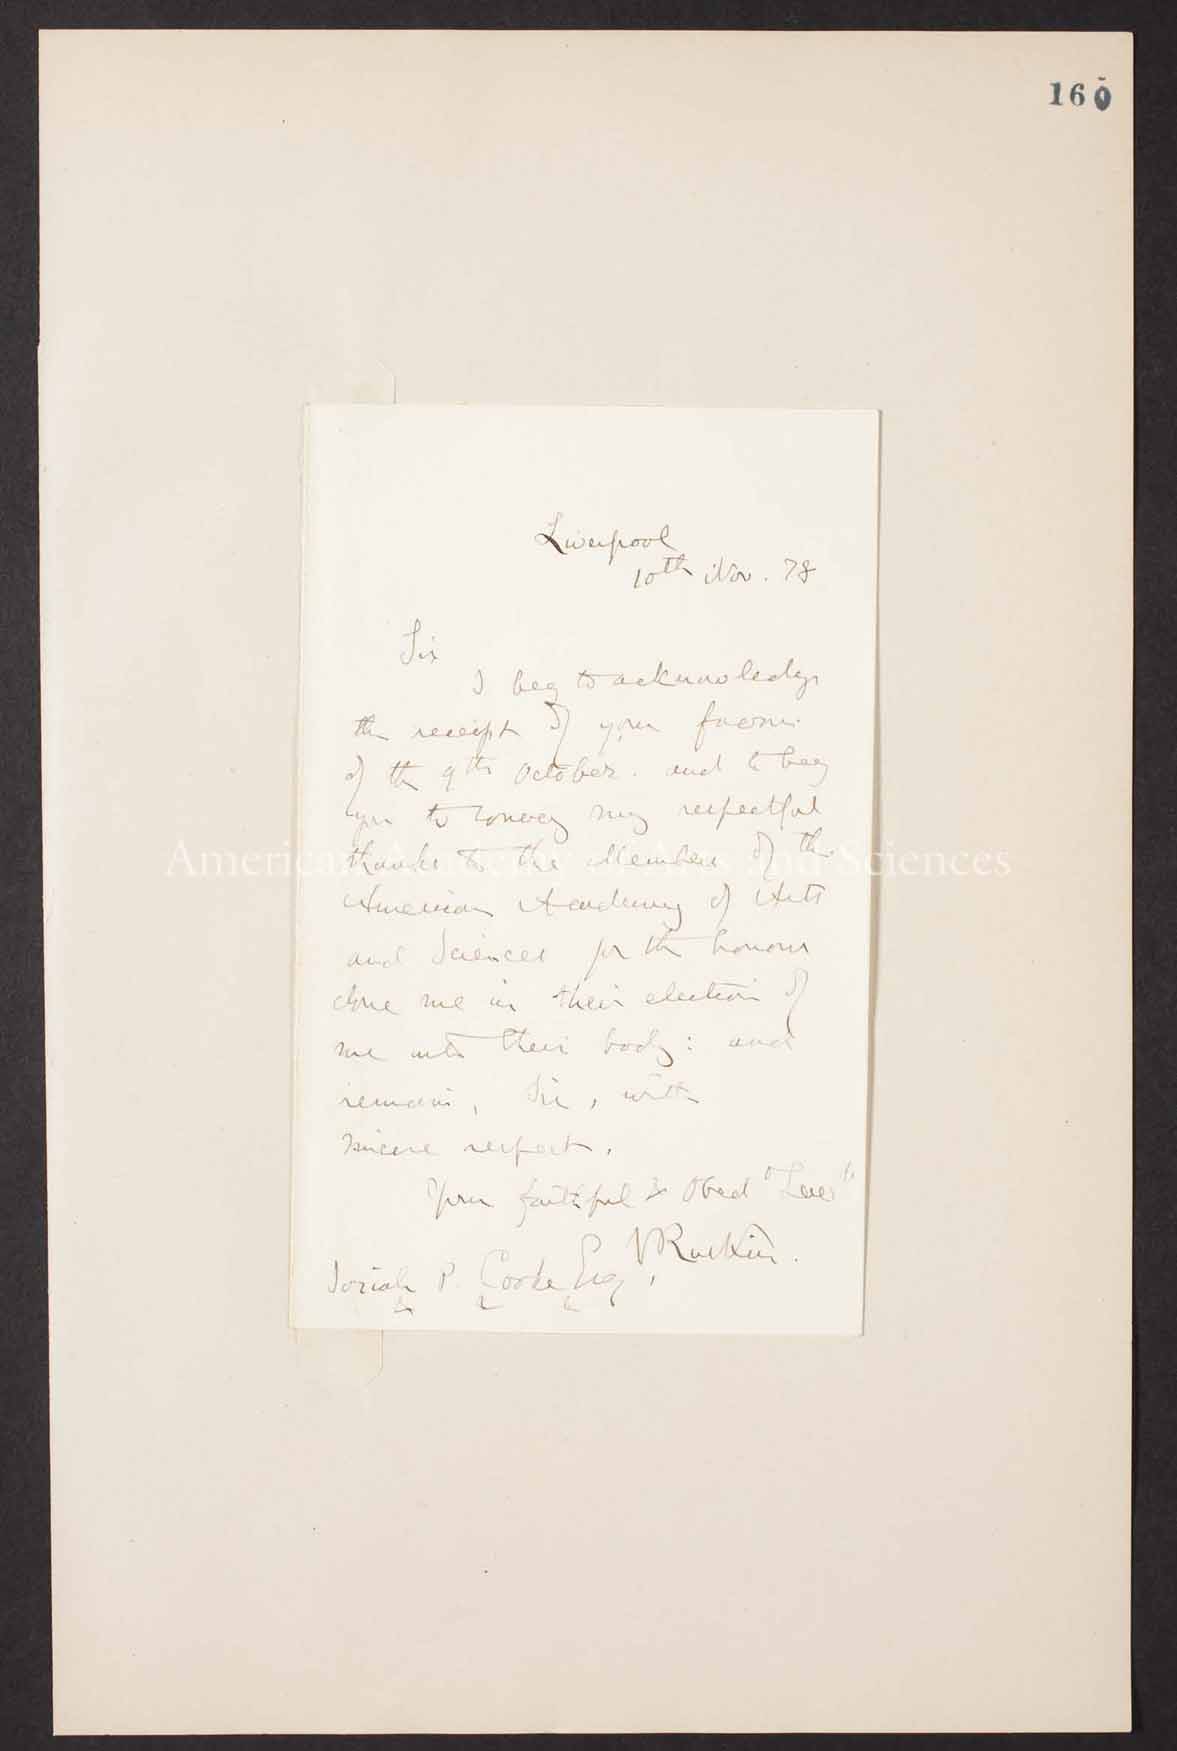 160
Liverpool
10th Nov. 78
Sir
I beg to acknowledge
the receipt of your favour
of the 9th October. and to beg
you to convey my respectful
thanks to the Members of the
American Academy of Arts
and Sciences for the honour
done me in their election of
me into their body: and
remain, Sir, with
sincere respect.
Your faithful &
J Ruskin.
Josiah P. Cooke Esq,
American Academy of Arts and Sciences